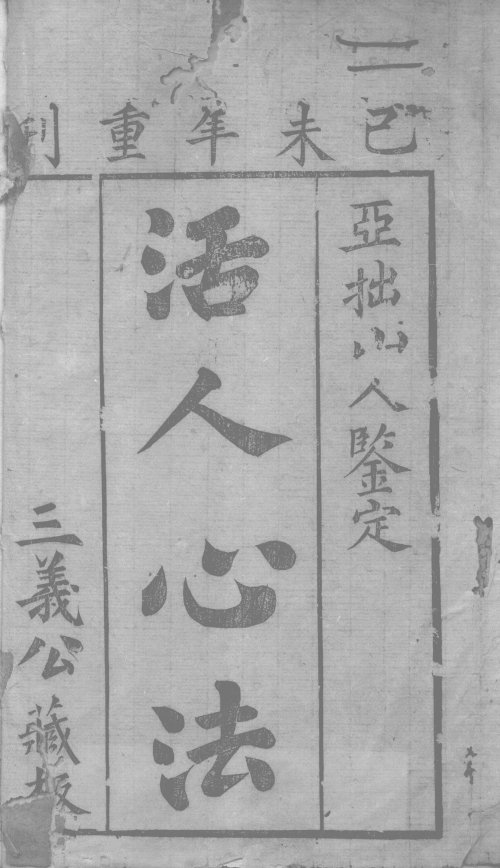 二
己未年重刊
亞拙山人鑒定
活人心法
三義公藏板